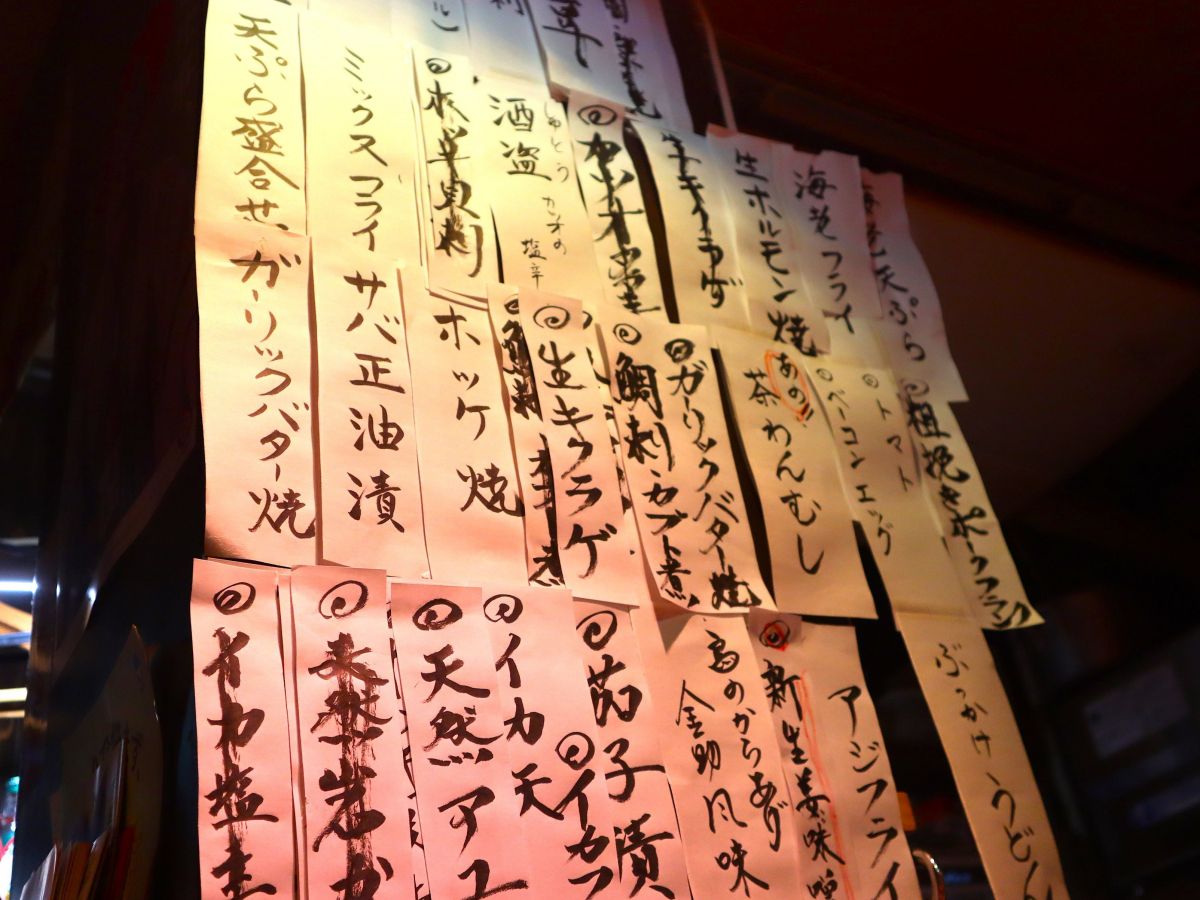 天ぷら盛合せ
ミックスフライ
酒盗
しゅとう
カツオの
塩辛
生ホルモン焼
海老フライ
海老天ぷら
ガーリックバター焼
サバ正油漬
ホッケ焼
生キクラゲ
鯛刺・カブト煮
ガーリックバター焼
あの!!
茶わんむし
ベーコンエッグ
トマト
粗挽きポークフランク
イカ塩辛
天然岩ガ
天然アユ
イカ天
イカフ
茄子漬
鳥のからあげ
金助風味
新生姜味噌
アジフライ
ぶっかけうどん